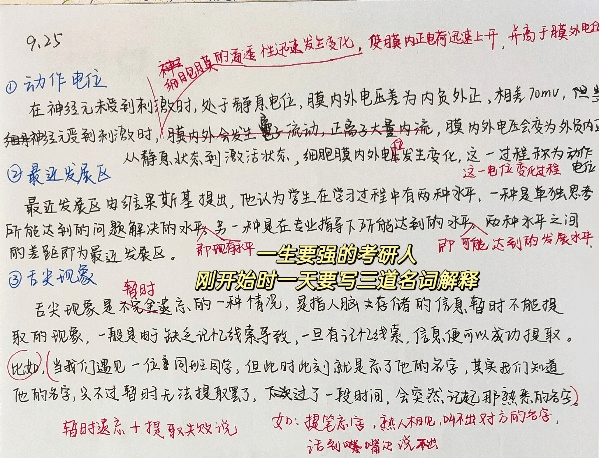 9.25
细胞膜的通透性迅速发生变化,使膜内正电荷迅速上升,并高于膜外电位
① 动作电位
在神经元未受到刺激时,处于静息电位,膜内外电压差为内负外正,相差70mv,但当
神经元受到刺激时,膜内外会发生电子流动,正离子大量内流,膜内外电压会变为外负内正
从静息状态到激活状态,细胞膜内外电位发生变化,这一过程称为动作电位
这一电位变化过程
② 最近发展区
最近发展区由维果斯基提出,他认为学生在学习过程中有两种水平,一种是单独思考
所能达到的问题解决的水平,另一种是在专业指导下所能达到的水平,两种水平之间
的差距即为最近发展区。
即现有水平
即可能达到的发展水平
一生要强的考研人
刚开始时一天要写三道名词解释
③ 舌尖现象
暂时
舌尖现象是不完全遗忘的一种情况,是指人脑中存储的信息暂时不能提
取的现象,一般是由于缺乏记忆线索导致,一旦有记忆线索,信息便可以成功提取。
比如,(当我们遇见一位同班同学,但此时此刻就是忘了他的名字,其实我们知道
他的名字,只不过暂时无法提取罢了,过了一段时间,会突然记起那熟悉的名字)
暂时遗忘+提取失败说
如:提笔忘字,熟人相见,叫不出对方的名字,
话到嘴边说不出